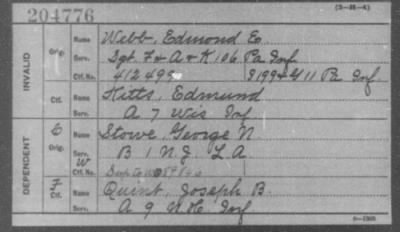 204776
(3-98-4)
INVALID
Orig.
Name Webb, Edmond E
Serv. Sgt F & A & K 106 Pa Inf
Ctf. No. 412 499 & 11 Pa Inf
Ctf.
Name Kitts, Edmund
Serv. A 7 Wis Inf
DEPENDENT
6
Orig.
Name Stowe, George N
Serv. B 1 N.J. L A
W
Ctf. No.
7
Ctf.
Name Quint, Joseph B.
Serv. A 9 N.H. Inf